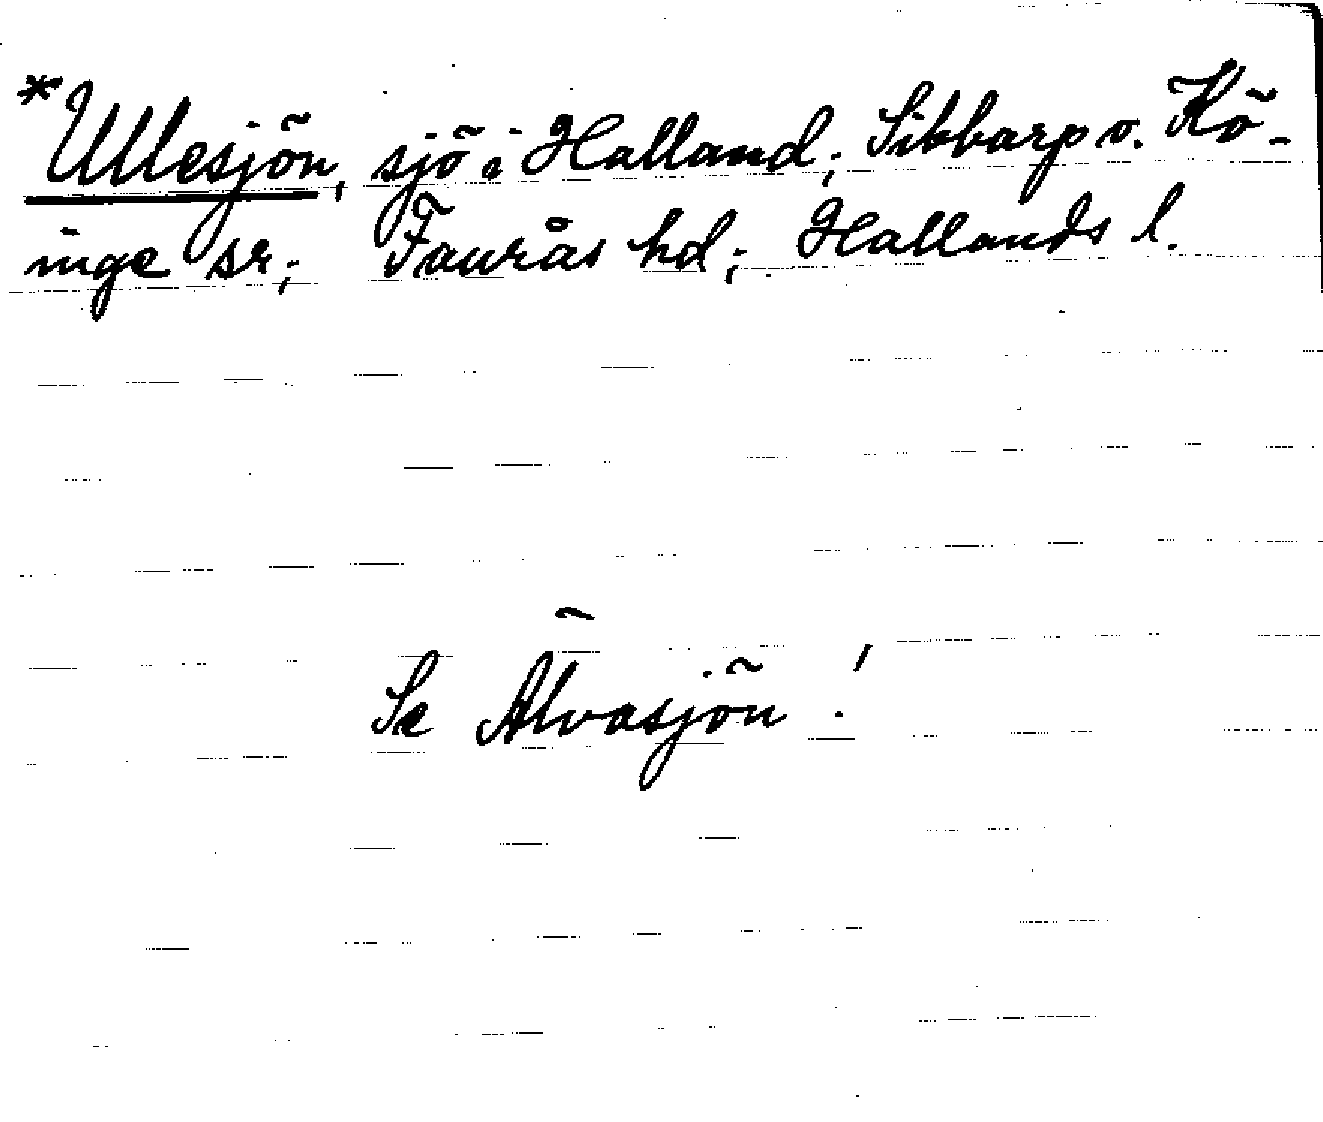 *Ullesjön, sjö i Halland; Sibbarp o. Kö-
inge sr; Faurås hd; Hallands l.
Se Älvasjön!